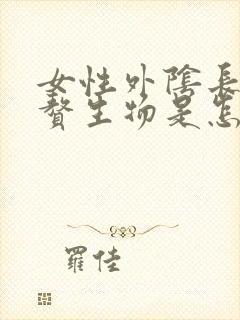 女性外陰長
贅生物是怎
羅佳